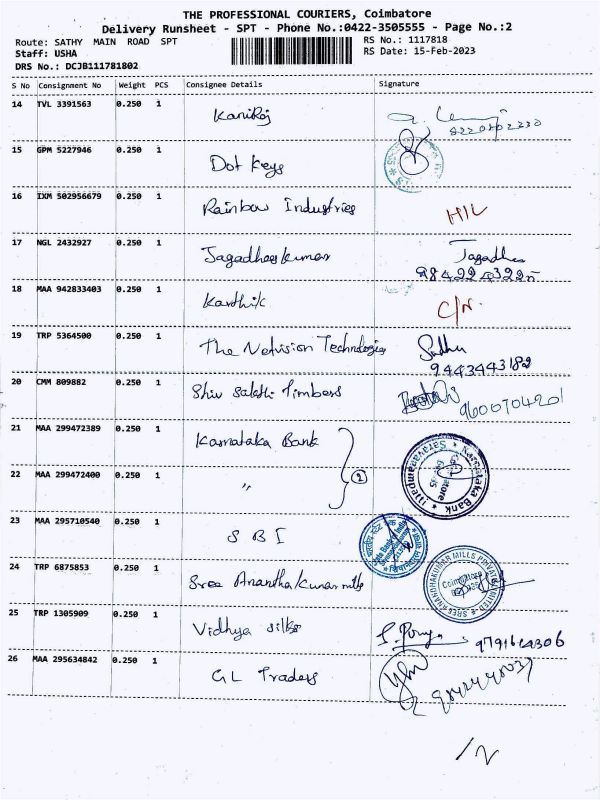 THE PROFESSIONAL COURIERS, Coimbatore
Delivery Runsheet - SPT - Phone No.:0422-3505555 - Page No.:2
Route: SATHY MAIN ROAD SPT
RS No.: 1117818
Staff: USHA
RS Date: 15-Feb-2023
DRS No.: DCJB111781802
S No Consignment No Weight PCS Consignee Details Signature
14 TVL 3391563 0.250 1 Kaniraj
15 GPM 5227946 0.250 1 Dot Keys
16 IXM 502956679 0.250 1 Rainbow Industries HIL
17 NGL 2432927 0.250 1 Jagadheeskumar
18 MAA 942833403 0.250 1 Karthik C/N.
19 TRP 5364500 0.250 1 The Netvision Technologies
9443443182
20 CMM 809882 0.250 1 Shiv Sakthi Timbers 9600704201
21 MAA 299472389 0.250 1 Karnataka Bank
22 MAA 299472400 0.250 1 " 2
Karnataka Bank
23 MAA 295710540 0.250 1 SBI
State Bank of India
24 TRP 6875853 0.250 1 Sree Anantha kumar mills
Coimbatore
25 TRP 1305909 0.250 1 Vidhya silks
26 MAA 295634842 0.250 1 GL Traders